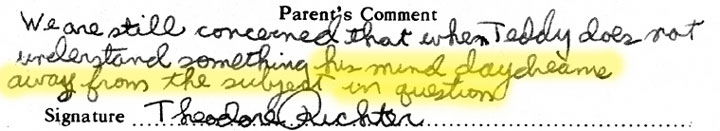 Parent's Comment
We are still concerned that when Teddy does not
understand something his mind daydreams
away from the subject in question
Signature Theodore Richter